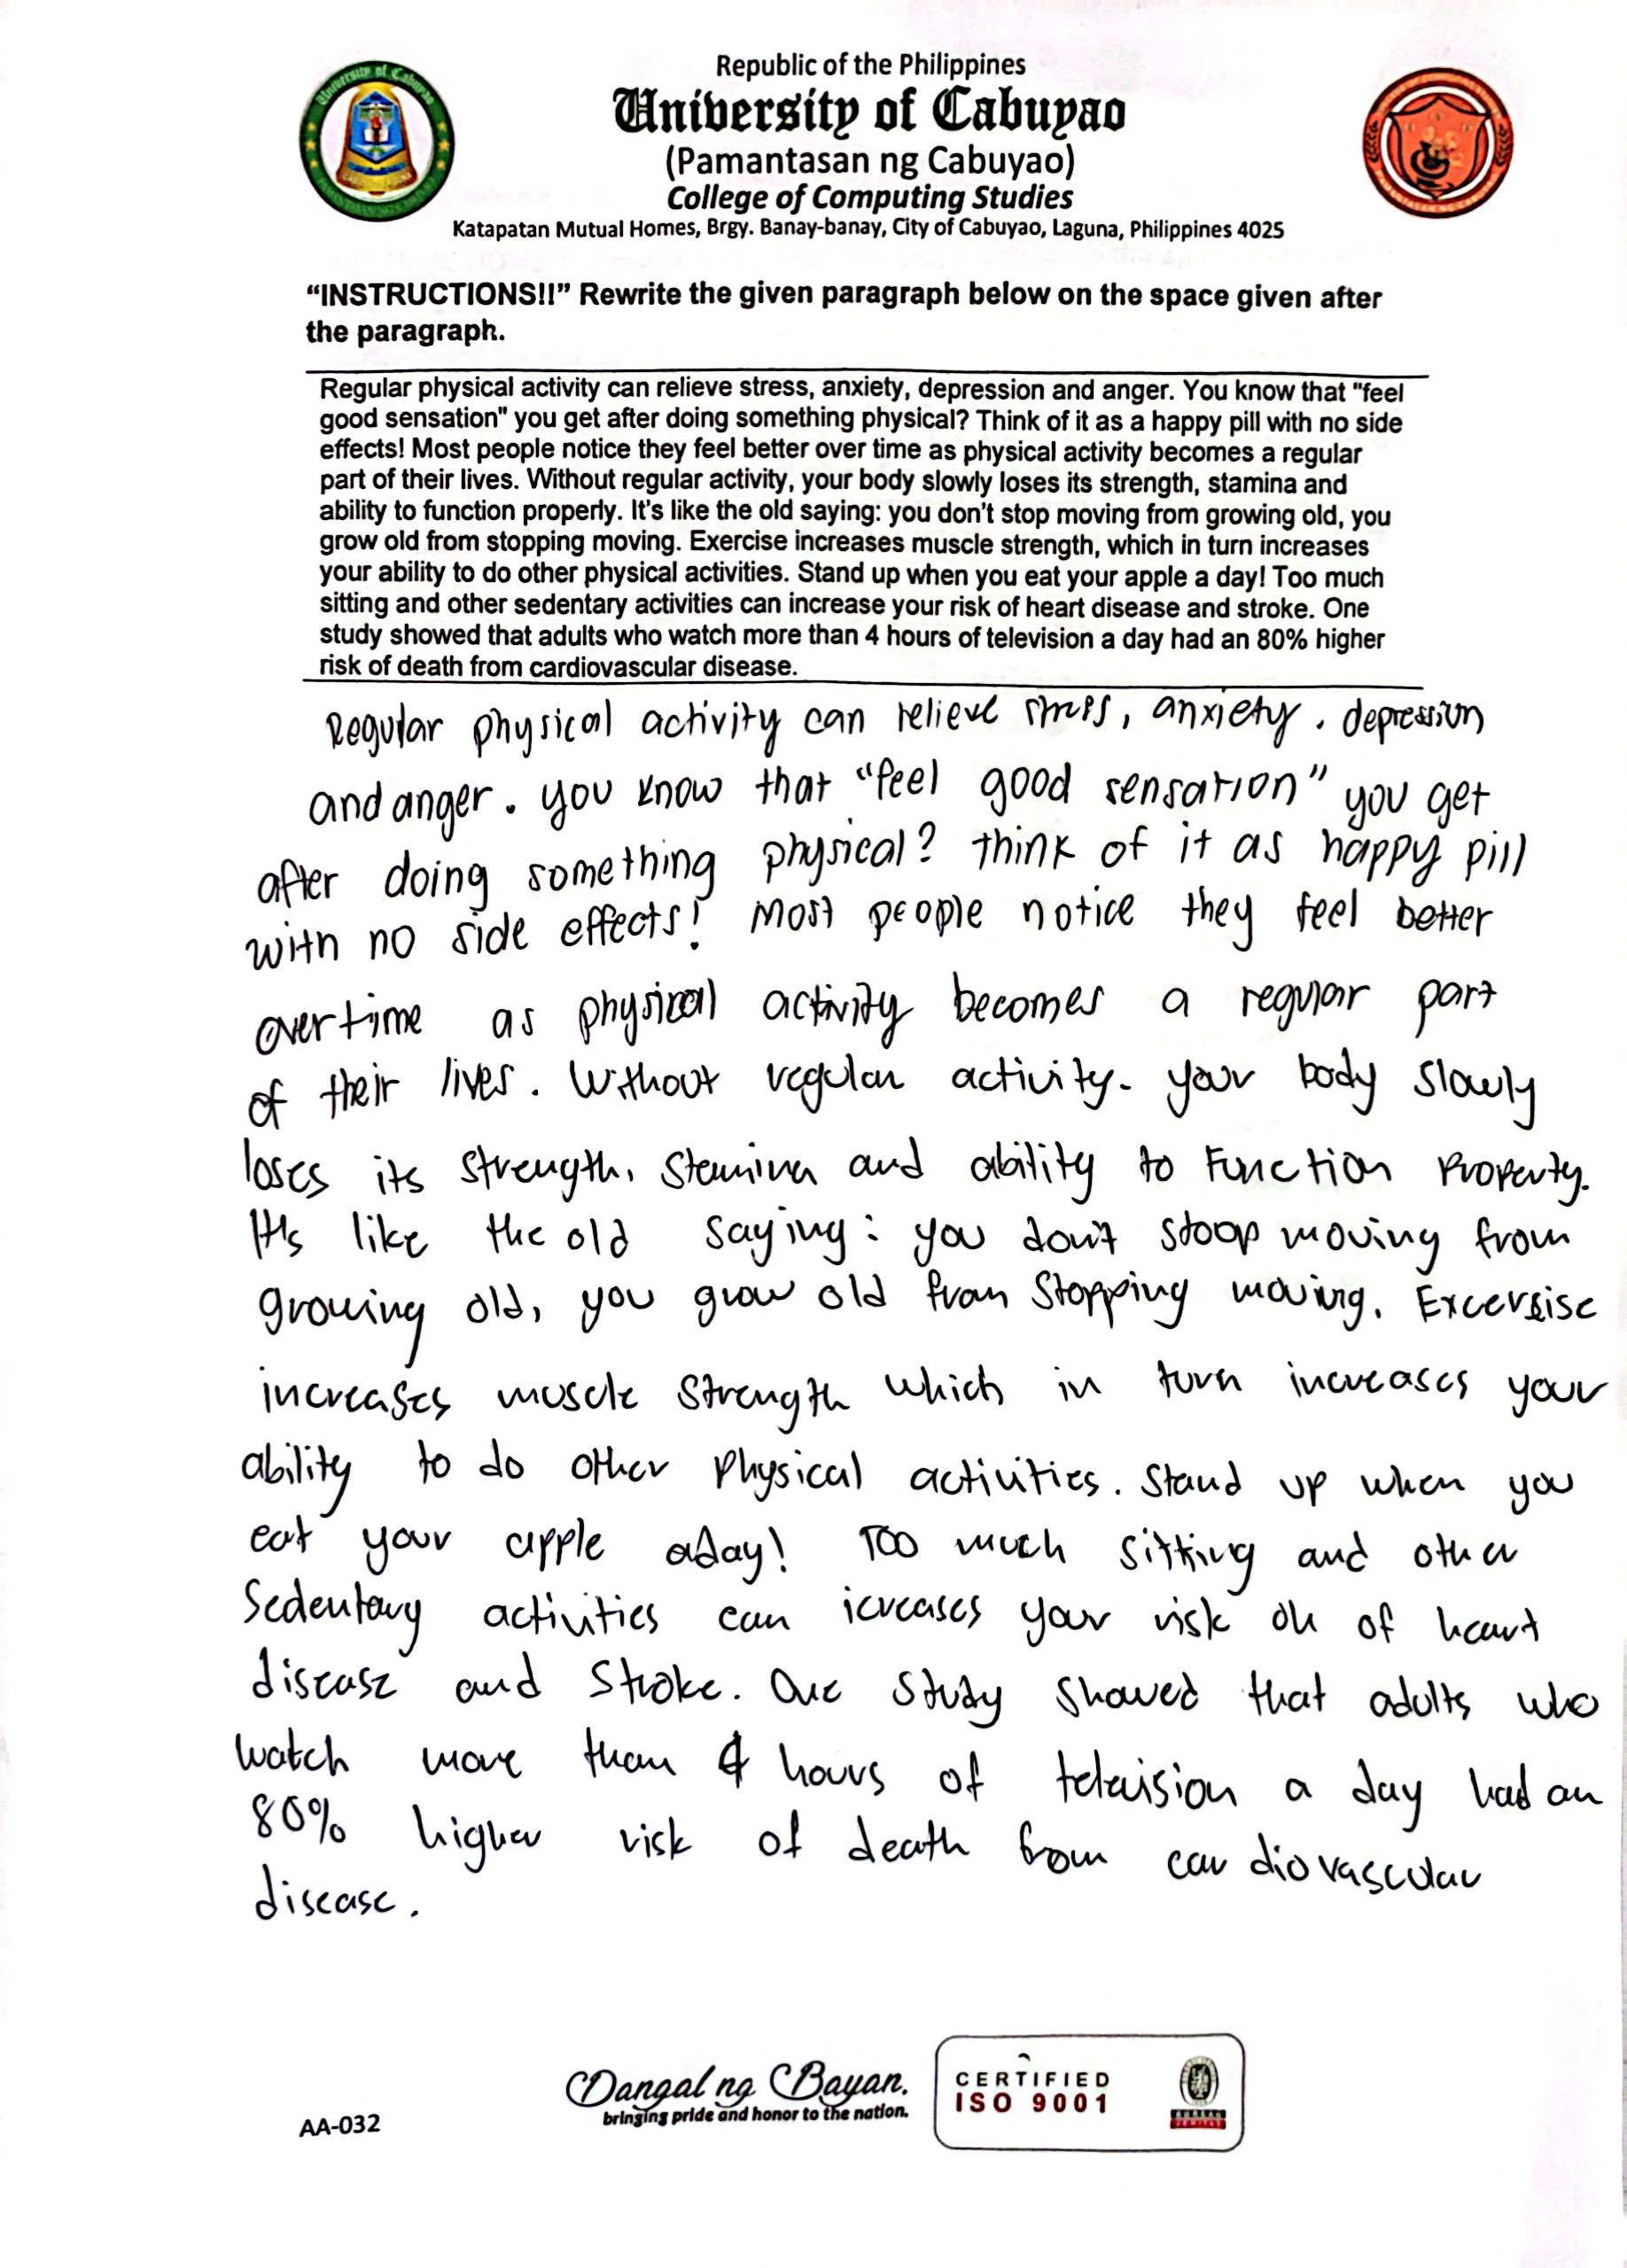 Republic of the Philippines
University of Cabuyao
(Pamantasan ng Cabuyao)
College of Computing Studies
Katapatan Mutual Homes, Brgy. Banay-banay, City of Cabuyao, Laguna, Philippines 4025
“INSTRUCTIONS!!” Rewrite the given paragraph below on the space given after
the paragraph.
Regular physical activity can relieve stress, anxiety, depression and anger. You know that "feel
good sensation" you get after doing something physical? Think of it as a happy pill with no side
effects! Most people notice they feel better over time as physical activity becomes a regular
part of their lives. Without regular activity, your body slowly loses its strength, stamina and
ability to function properly. It's like the old saying: you don't stop moving from growing old, you
grow old from stopping moving. Exercise increases muscle strength, which in turn increases
your ability to do other physical activities. Stand up when you eat your apple a day! Too much
sitting and other sedentary activities can increase your risk of heart disease and stroke. One
study showed that adults who watch more than 4 hours of television a day had an 80% higher
risk of death from cardiovascular disease.
Regular physical activity can relieve stress, anxiety, depression
and anger. you know that “feel good sensation” you get
after doing something physical? think of it as happy pill
with no side effects! Most people notice they feel better
over time as physical activity becomes a regular part
of their lives. Without regular activity. your body slowly
loses its strength, stamina and ability to function property.
It's like the old saying: you don't stoop moving from
growing old, you grow old from stopping moving. Excersise
increases muscle strength which in turn increases your
ability to do other physical activities. Stand up when you
eat your apple aday! Too much sitting and other
Sedentary activities can icreases your risk oh of heart
disease and stroke. One study showed that adults who
watch more than 4 hours of television a day had an
80% higher risk of death from cardiovascular
disease.
AA-032
Dangal ng Bayan.
bringing pride and honor to the nation.
CERTIFIED
ISO 9001
BUREAU
VERITAS